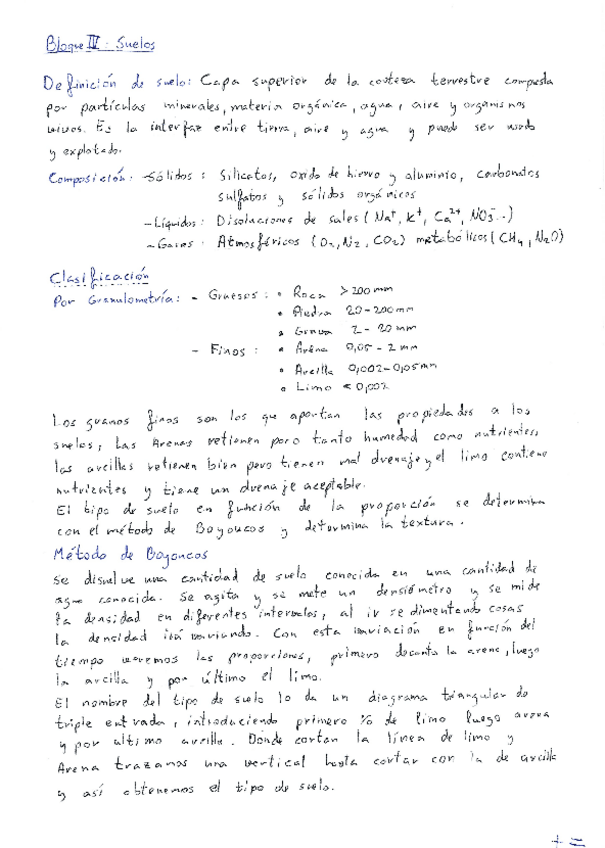 Bloque IV: Suelos
Definición de suelo: Capa superior de la corteza terrestre compuesta
por partículas minerales, materia orgánica, agua, aire y organismos
vivos. Es la interfaz entre tierra, aire y agua y puede ser usado
y explotado.
Composición: - Sólidos: Silicatos, oxido de hierro y aluminio, carbonatos
sulfatos y sólidos orgánicos
- Líquidos: Disoluciones de sales (Na⁺, K⁺, Ca²⁺, NO₃⁻..)
- Gases: Atmosféricos (O₂, N₂, CO₂) metabólicos (CH₄, N₂O)
Clasificación
Por Granulometría: - Gruesos: • Roca >200mm
• Piedra 20-200mm
• Grava 2-20mm
- Finos: • Arena 0,05-2mm
• Arcilla 0,002-0,05mm
• Limo <0,002
Los granos finos son los que aportan las propiedades a los
suelos, Las Arenas retienen poco tanto humedad como nutrientes,
las arcillas retienen bien pero tienen mal drenaje y el limo contiene
nutrientes y tiene un drenaje aceptable.
El tipo de suelo en función de la proporción se determina
con el método de Boyoucos y determina la textura.
Método de Boyoucos
Se disuelve una cantidad de suelo conocida en una cantidad de
agua conocida. Se agita y se mete un densiómetro y se mide
la densidad en diferentes intervalos, al ir sedimentando cosas
la densidad irá variando. Con esta variación en función del
tiempo veremos las proporciones, primero decanta la arena, luego
la arcilla y por último el limo.
El nombre del tipo de suelo lo da un diagrama triangular de
triple entrada, introduciendo primero % de limo luego arena
y por ultimo arcilla. Donde cortan la línea de limo y
Arena trazamos una vertical hasta cortar con la de arcilla
y así obtenemos el tipo de suelo.